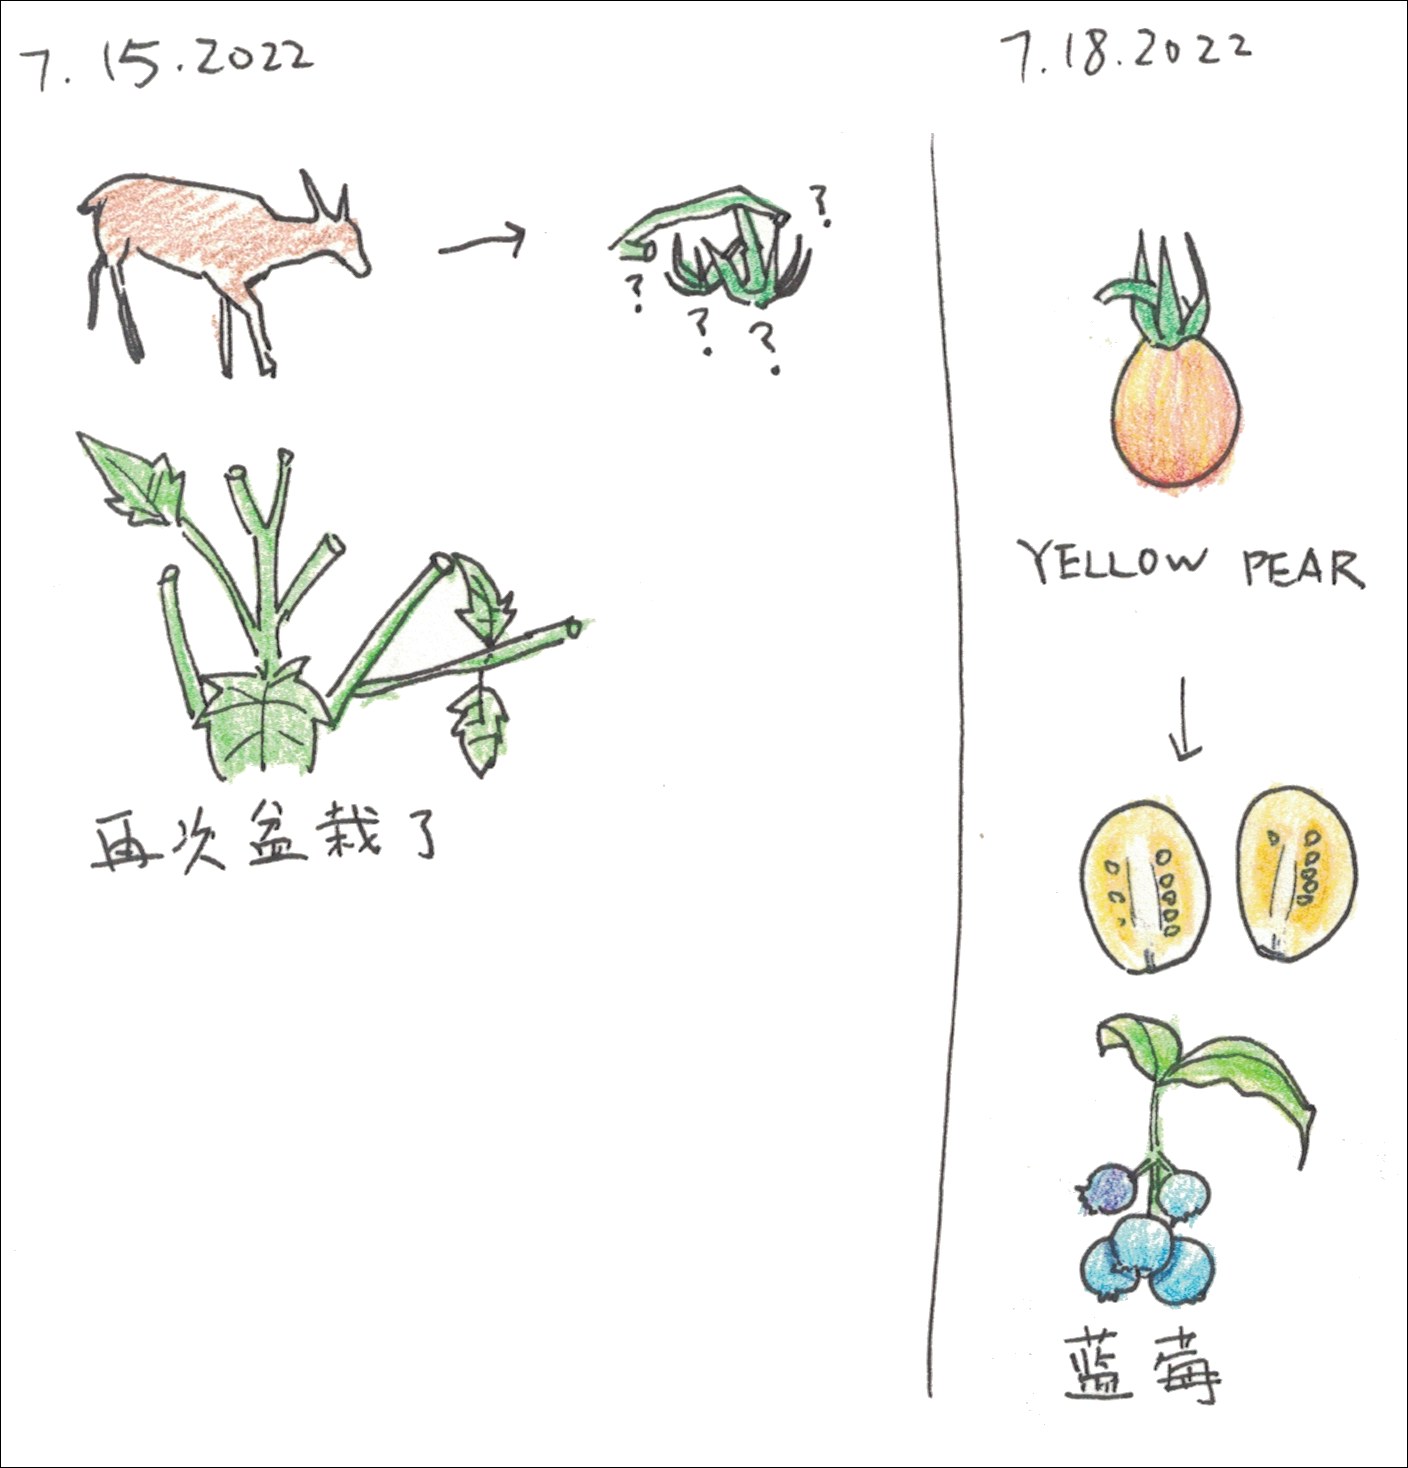 7.15.2022
?
?
?
?
再次盆栽了
7.18.2022
YELLOW PEAR
蓝莓